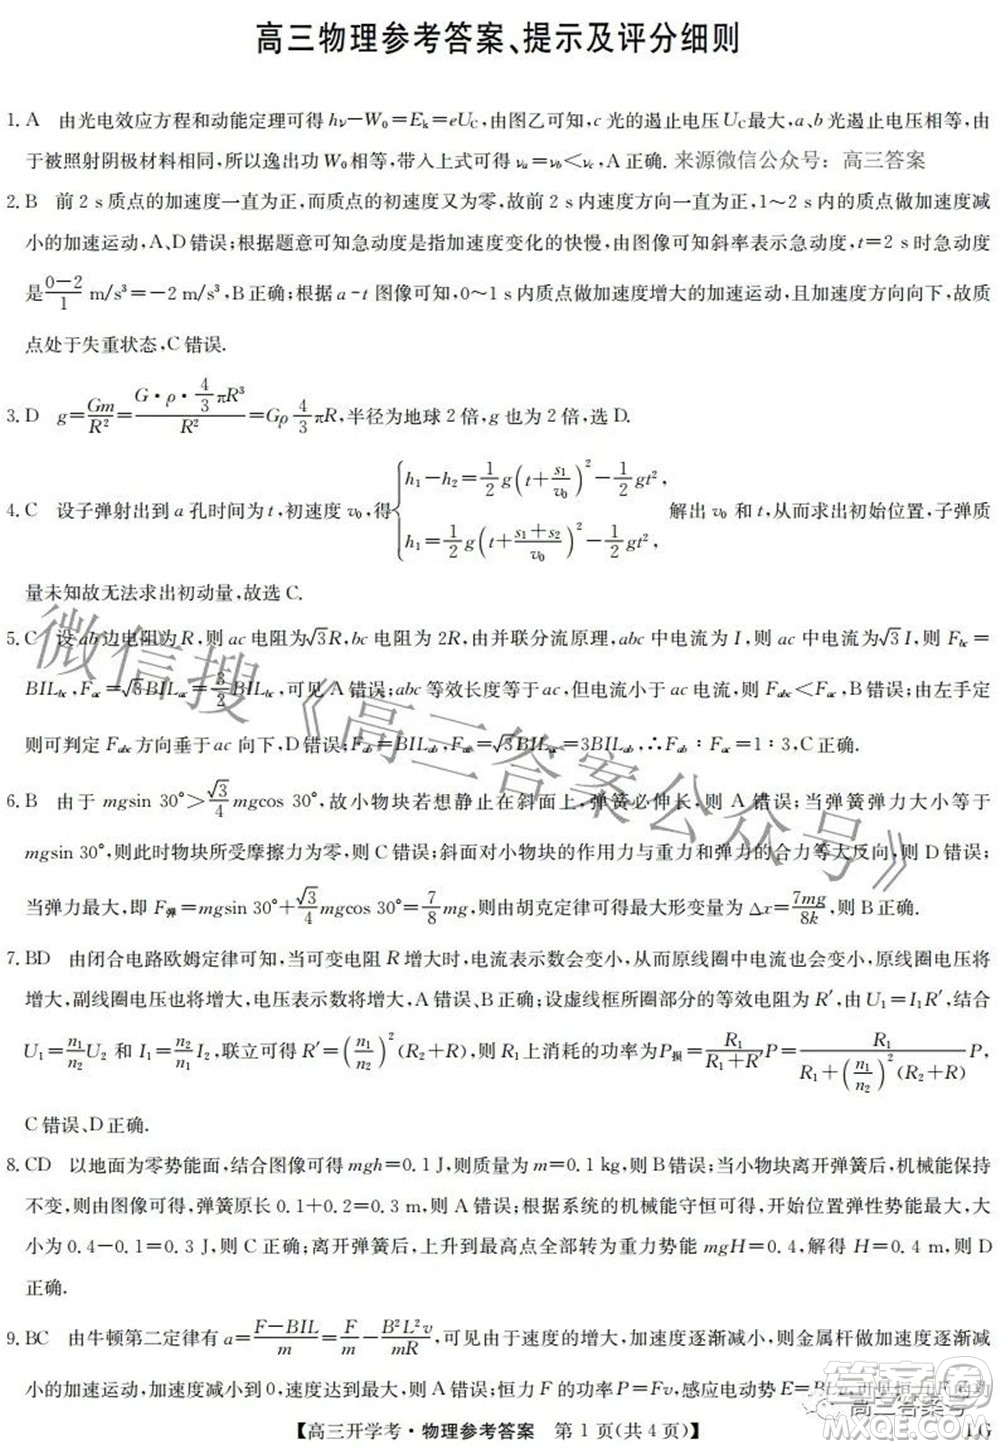 高三物理参考答案、提示及评分细则
1. A　由光电效应方程和动能定理可得 hν－W₀＝Eₖ＝eU_C,由图乙可知,c 光的遏止电压 U_C 最大,a、b 光遏止电压相等,由
于被照射阴极材料相同,所以逸出功 W₀ 相等,带入上式可得 ν_a＝ν_b＜ν_c,A 正确. 来源微信公众号：高三答案
2. B　前 2 s 质点的加速度一直为正,而质点的初速度又为零,故前 2 s 内速度方向一直为正,1～2 s 内的质点做加速度减
小的加速运动,A、D 错误;根据题意可知急动度是指加速度变化的快慢,由图像可知斜率表示急动度,t＝2 s 时急动度
是 (0－2)/1 m/s³＝－2 m/s³,B 正确;根据 a－t 图像可知,0～1 s 内质点做加速度增大的加速运动,且加速度方向向下,故质
点处于失重状态,C 错误.
3. D　g＝Gm/R²＝(G·ρ·4/3 πR³)/R²＝Gρ 4/3 πR,半径为地球 2 倍,g 也为 2 倍,选 D.
4. C　设子弹射出到 a 孔时间为 t,初速度 v₀,得{h₁－h₂＝1/2 g(t＋s₁/v₀)²－1/2 gt², h₁＝1/2 g(t＋(s₁＋s₂)/v₀)²－1/2 gt²,　解出 v₀ 和 t,从而求出初始位置,子弹质
量未知故无法求出初动量,故选 C.
5. C　设 ab 边电阻为 R,则 ac 电阻为 √3R,bc 电阻为 2R,由并联分流原理,abc 中电流为 I,则 ac 中电流为 √3 I,则 F_bc＝
BIL_bc,F_ac＝√3BIL_ac＝3/2 BIL_bc,可见 A 错误;abc 等效长度等于 ac,但电流小于 ac 电流,则 F_abc＜F_ac,B 错误;由左手定
则可判定 F_abc 方向垂于 ac 向下,D 错误;F_ab＝BIL_ab,F_ac＝√3BIL_ac＝3BIL_ab,∴F_ab∶F_ac＝1∶3,C 正确.
6. B　由于 mgsin 30°＞√3/4 mgcos 30°,故小物块若想静止在斜面上,弹簧必伸长,则 A 错误;当弹簧弹力大小等于
mgsin 30°,则此时物块所受摩擦力为零,则 C 错误;斜面对小物块的作用力与重力和弹力的合力等大反向,则 D 错误;
当弹力最大,即 F弹＝mgsin 30°＋√3/4 mgcos 30°＝7/8 mg,则由胡克定律可得最大形变量为 Δx＝7mg/8k,故 B 正确.
7. BD　由闭合电路欧姆定律可知,当可变电阻 R 增大时,电流表示数会变小,从而原线圈中电流也会变小,原线圈电压将
增大,副线圈电压也将增大,电压表示数将增大,A 错误、B 正确;设虚线框所圈部分的等效电阻为 R′,由 U₁＝I₁R′,结合
U₁＝n₁/n₂ U₂ 和 I₁＝n₂/n₁ I₂,联立可得 R′＝(n₁/n₂)²(R₂＋R),则 R₁ 上消耗的功率为 P损＝R₁/(R₁＋R′) P＝R₁/(R₁＋(n₁/n₂)²(R₂＋R)) P,
C 错误、D 正确.
8. CD　以地面为零势能面,结合图像可得 mgh＝0.1 J,则质量为 m＝0.1 kg,则 B 错误;当小物块离开弹簧后,机械能保持
不变,则由图像可得,弹簧原长 0.1＋0.2＝0.3 m,则 A 错误;根据系统的机械能守恒可得,开始位置弹性势能最大,大
小为 0.4－0.1＝0.3 J,则 C 正确;离开弹簧后,上升到最高点全部转为重力势能 mgH＝0.4,解得 H＝0.4 m,则 D
正确.
9. BC　由牛顿第二定律有 a＝(F－BIL)/m＝F/m－B²L²v/mR,可见由于速度的增大,加速度逐渐减小,则金属杆做加速度逐渐减
小的加速运动,加速度减小到 0,速度增加到最大;恒力 F 的功率 P＝Fv,感应电动势 E＝
【高三开学考·物理参考答案　第 1 页(共 4 页)】
LG
微信搜《高三答案公众号》
高三答案号